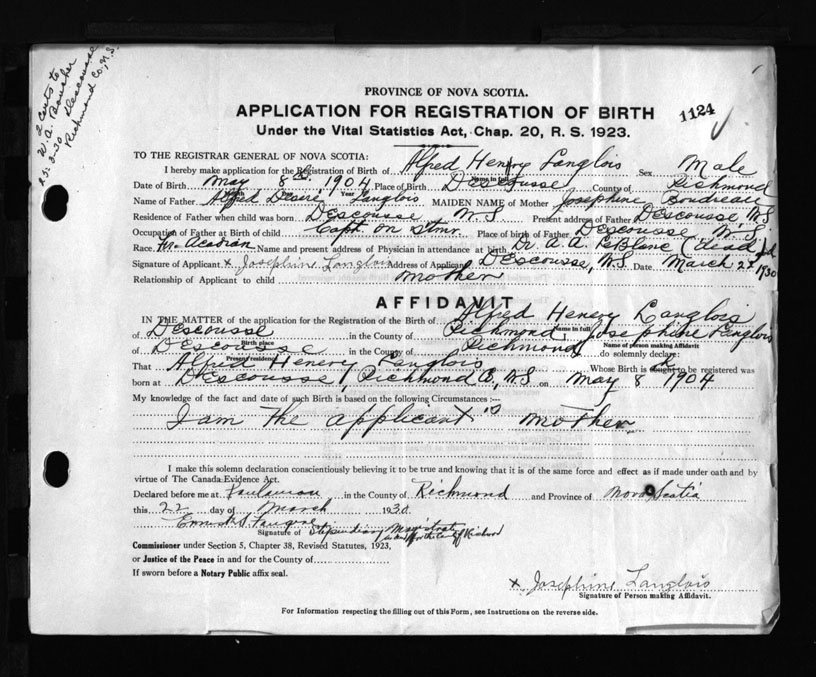 2 certs to
W. A. Boucher
Descousse
Richmond Co, N.S.
25-3-30
PROVINCE OF NOVA SCOTIA.
APPLICATION FOR REGISTRATION OF BIRTH
1124
Under the Vital Statistics Act, Chap. 20, R. S. 1923.
TO THE REGISTRAR GENERAL OF NOVA SCOTIA:
I hereby make application for the Registration of Birth of Alfred Henery Langlois Sex Male
Name in full
Date of Birth May 8th, 1904 Place of Birth Descousse County of Richmond
Name of Father Alfred Desire Langlois MAIDEN NAME of Mother Josephine Boudreau
Residence of Father when child was born Descousse N.S Present address of Father Descousse N.S
Occupation of Father at Birth of child Capt. on Stmr. Place of birth of Father Descousse N.S.
Race Fr. Acadian Name and present address of Physician in attendance at birth Dr. A. A. LeBlanc (Dead)
Signature of Applicant x Josephine Langlois Address of Applicant Descousse, N.S. Date March 22 1930
Relationship of Applicant to child mother
AFFIDAVIT
IN THE MATTER of the application for the Registration of Birth of Alfred Henery Langlois
Name in full
of Descousse in the County of Richmond Josephine Langlois
Birth place Name of person making Affidavit
of Descousse in the County of Richmond do solemnly declare:
Present residence
That Alfred Henery Langlois Whose Birth is to be registered was
born at Descousse, Richmond Co, N.S on May 8 1904
My knowledge of the fact and date of such Birth is based on the following Circumstances :—
I am the applicant's mother
I make this solemn declaration conscientiously believing it to be true and knowing that it is of the same force and effect as if made under oath and by
virtue of The Canada Evidence Act.
Declared before me at in the County of Richmond and Province of Nova Scotia
this 22 day of March 1930
Signature of Stipendiary Magistrate
in and for the County of Richmond
Commissioner under Section 5, Chapter 38, Revised Statutes, 1923,
or Justice of the Peace in and for the County of
If sworn before a Notary Public affix seal.
x Josephine Langlois
Signature of Person making Affidavit.
For Information respecting the filling out of this Form, see Instructions on the reverse side.